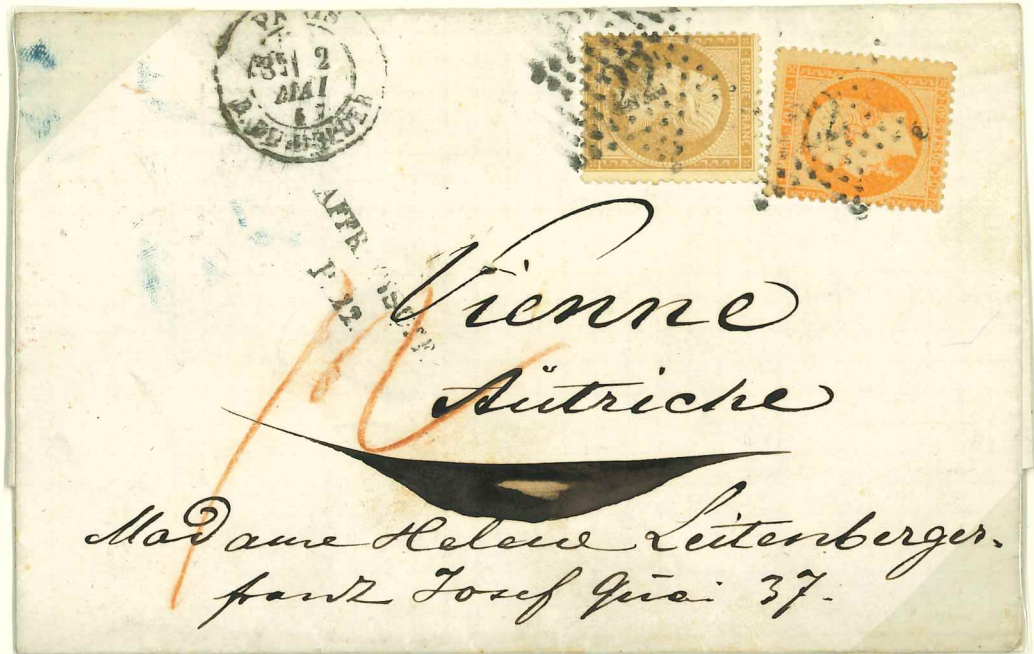 PARIS
2
MAI
67
22
EMPIRE FRANC
22
AFFR. INSUFF.
P. 12.
Vienne
Aütriche
Madame Helene Leitenberger.
franz Josef Quai 37.